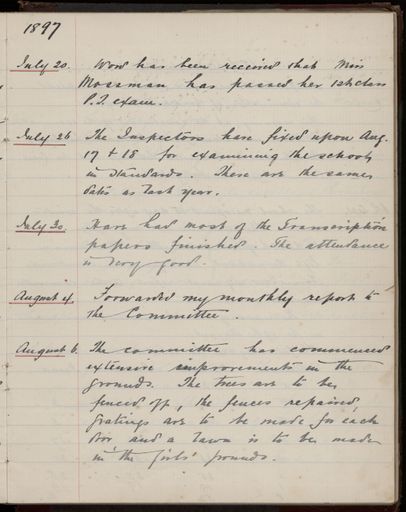 1897
July 20. Word has been received that Miss
Mossman has passed her 1st class
P.T. exam.
July 26 The Inspectors have fixed upon Aug.
17 & 18 for examining the school
in Standards. These are the same
dates as last year.
July 30. Have had most of the Transcription
papers finished. The attendance
is very good.
August 4. Forwarded my monthly report to
the Committee.
August 6. The committee has commenced
extensive improvements in the
grounds. The trees are to be
fenced off, the fences repaired,
gratings are to be made for each
door and a lawn is to be made
in the girls' grounds.